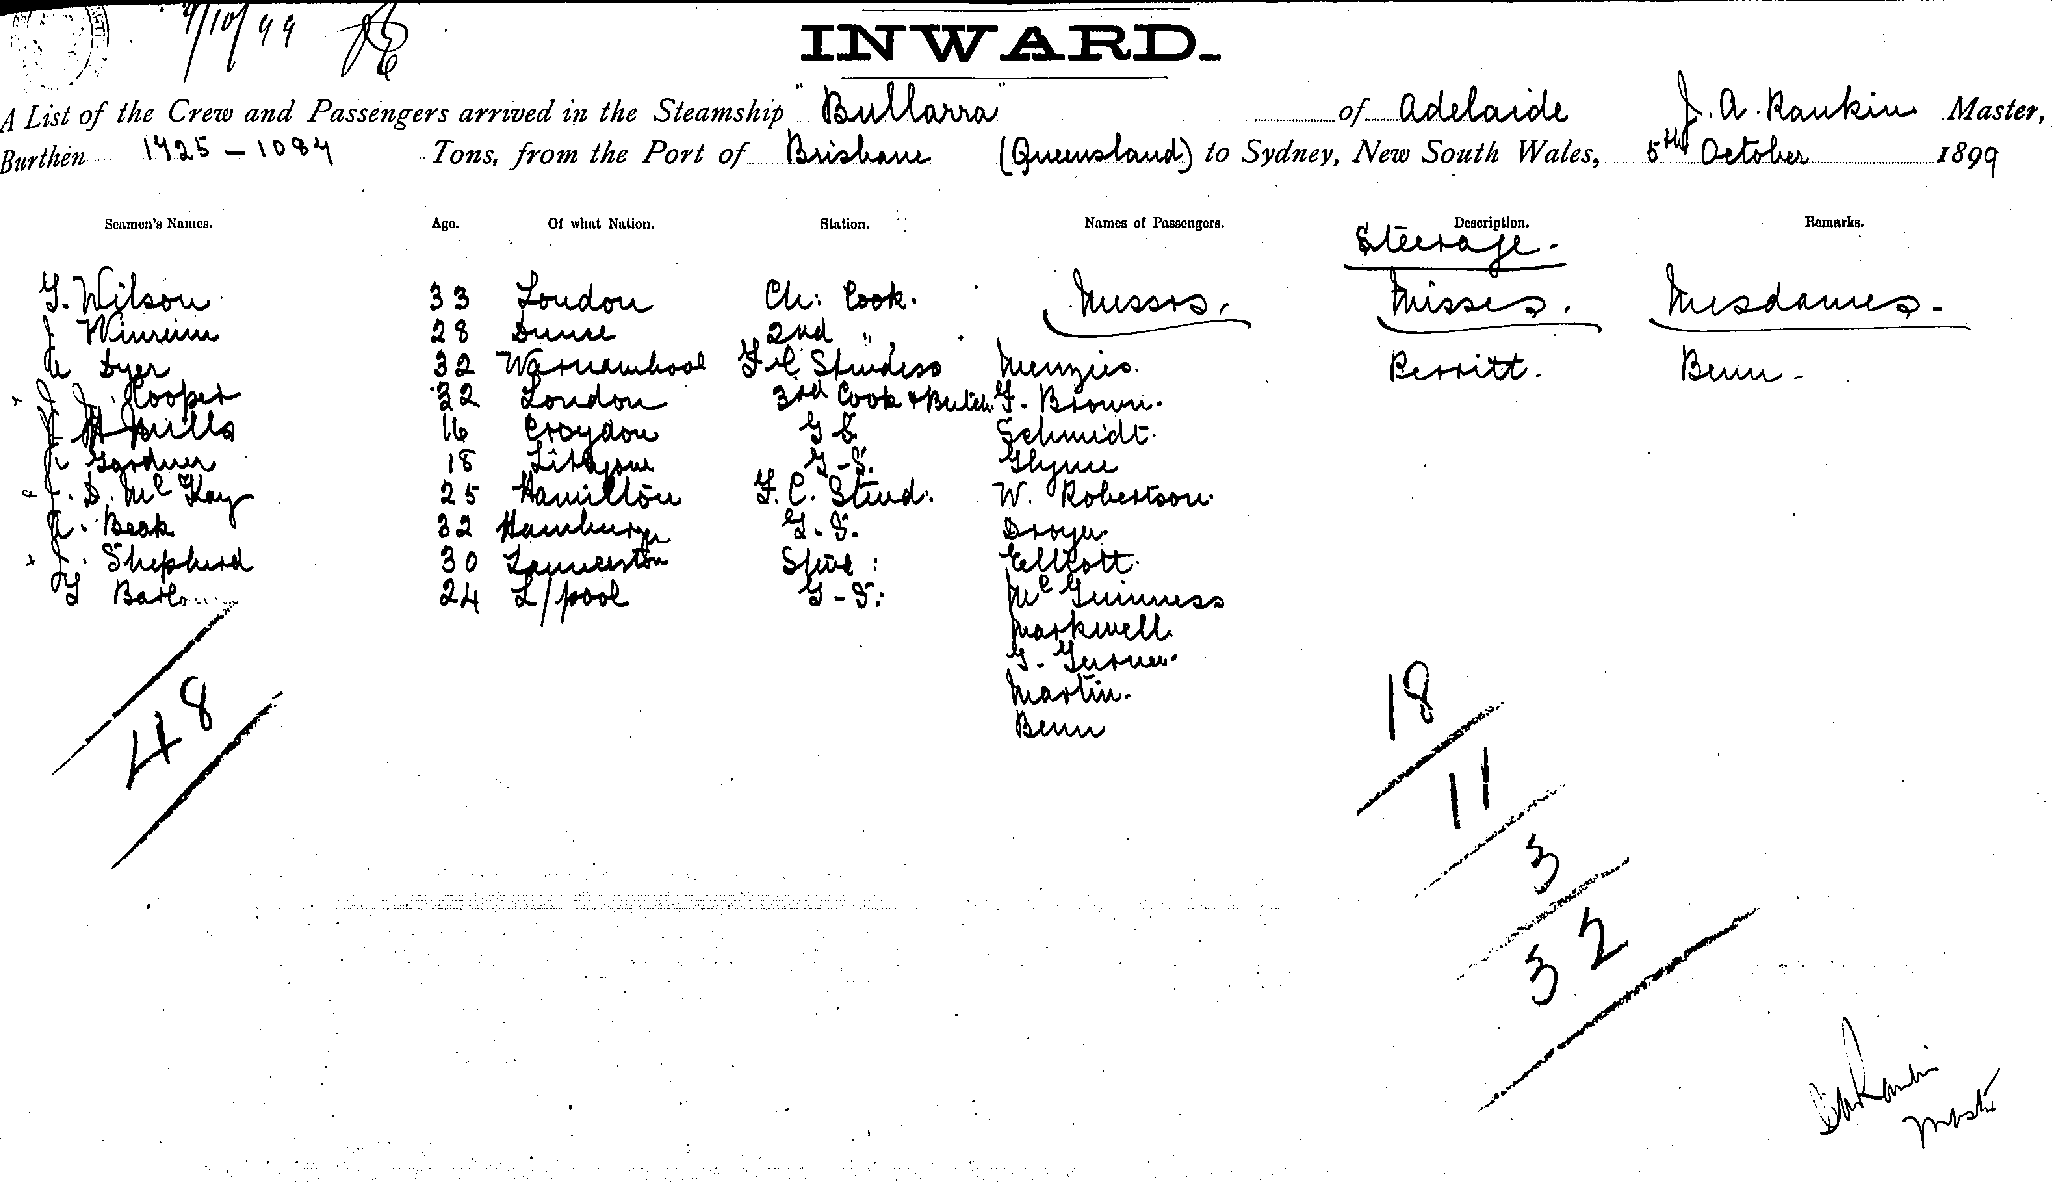 4/10/99
INWARD.
A List of the Crew and Passengers arrived in the Steamship "Bullarra" of Adelaide J. A. Rankin Master,
Burthen 1725 - 1084 Tons, from the Port of Brisbane (Queensland) to Sydney, New South Wales, 5th October 1899
Seamen's Names. Age. Of what Nation. Station. Names of Passengers. Description. Remarks.
Steerage.
G. Wilson 33 London Ch: Cook. Messrs. Misses. Mesdames.
28 2nd "
Dyer 32 Warnambool F C Studess Menzies. Perritt. Benn
J. Cooper 32 London 3rd Cook & Butch G. Brown.
J H Mills 16 Croydon G S Schmidt.
Gardner 18 Lithgow G-S. Glynn
J. D. McKay 25 Hamilton F. C. Stwd. W. Robertson
Beak 32 Hamburg G. S.
J. Shepherd 30 Launceston Stwd: Ellcott.
24 L/pool G-S: McGuinness
Markwell
G. Turner.
Martin.
Benn
48
18
11
3
32
J A Rankin
Master